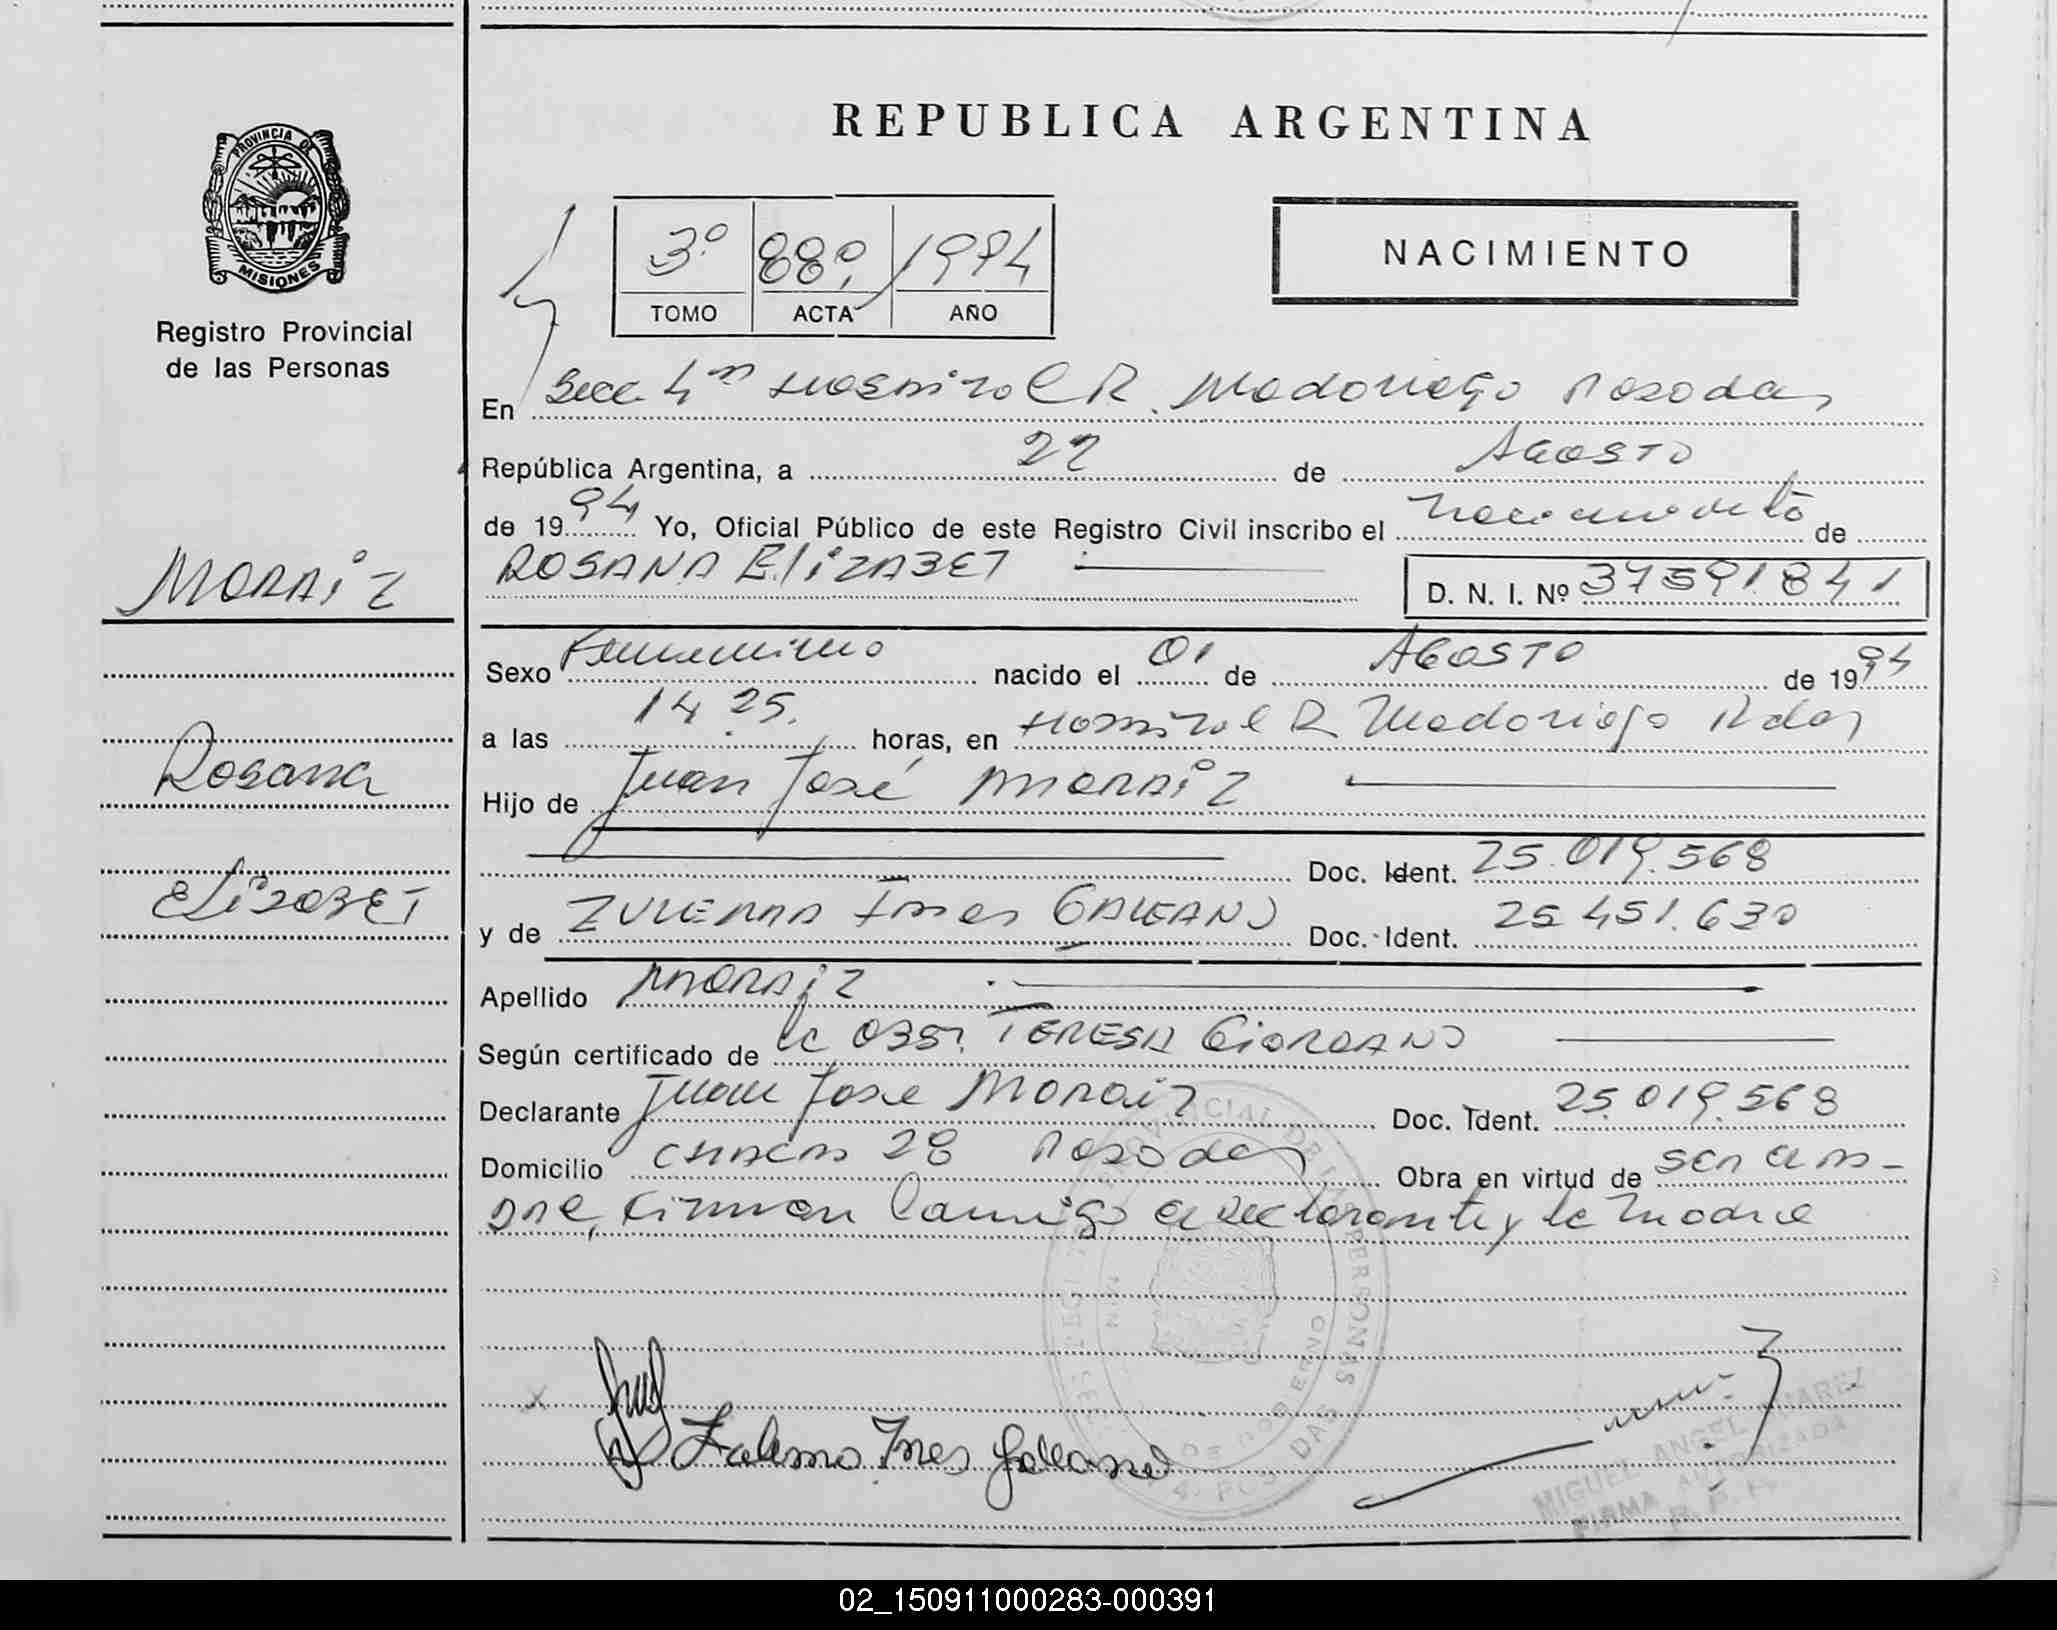 REPUBLICA ARGENTINA
PROVINCIA DE
MISIONES
Registro Provincial
de las Personas
3º 880 1994
TOMO ACTA AÑO
NACIMIENTO
En Secc 4ta Hospital R. Madariaga Posadas
República Argentina, a 22 de Agosto
de 1994 Yo, Oficial Público de este Registro Civil inscribo el nacimiento de
ROSANA ELIZABET D. N. I. Nº 37591841
MORAIZ
Rosana
ELIZABET
Sexo Femenino nacido el 01 de AGOSTO de 1994
a las 14 25. horas, en Hospital R Madariaga Pdas
Hijo de Juan José MORAIZ
Doc. Ident. 25.019.568
y de ZULEMA Ines GALEANO Doc. Ident. 25 451.630
Apellido MORAIZ
Según certificado de la OBST. TERESA GIORDANO
Declarante Juan Jose Moraiz Doc. Ident. 25.019.568
Domicilio CHACRA 28 Posadas Obra en virtud de ser el pa-
dre, Firman Conmigo el declarante y la Madre
REGISTRO PROVINCIAL DE LAS PERSONAS
MIN. DE GOBIERNO
POSADAS
Zulema Ines Galeano
MIGUEL ANGEL SUAREZ
FIRMA AUTORIZADA
R. P. P.
02_150911000283-000391